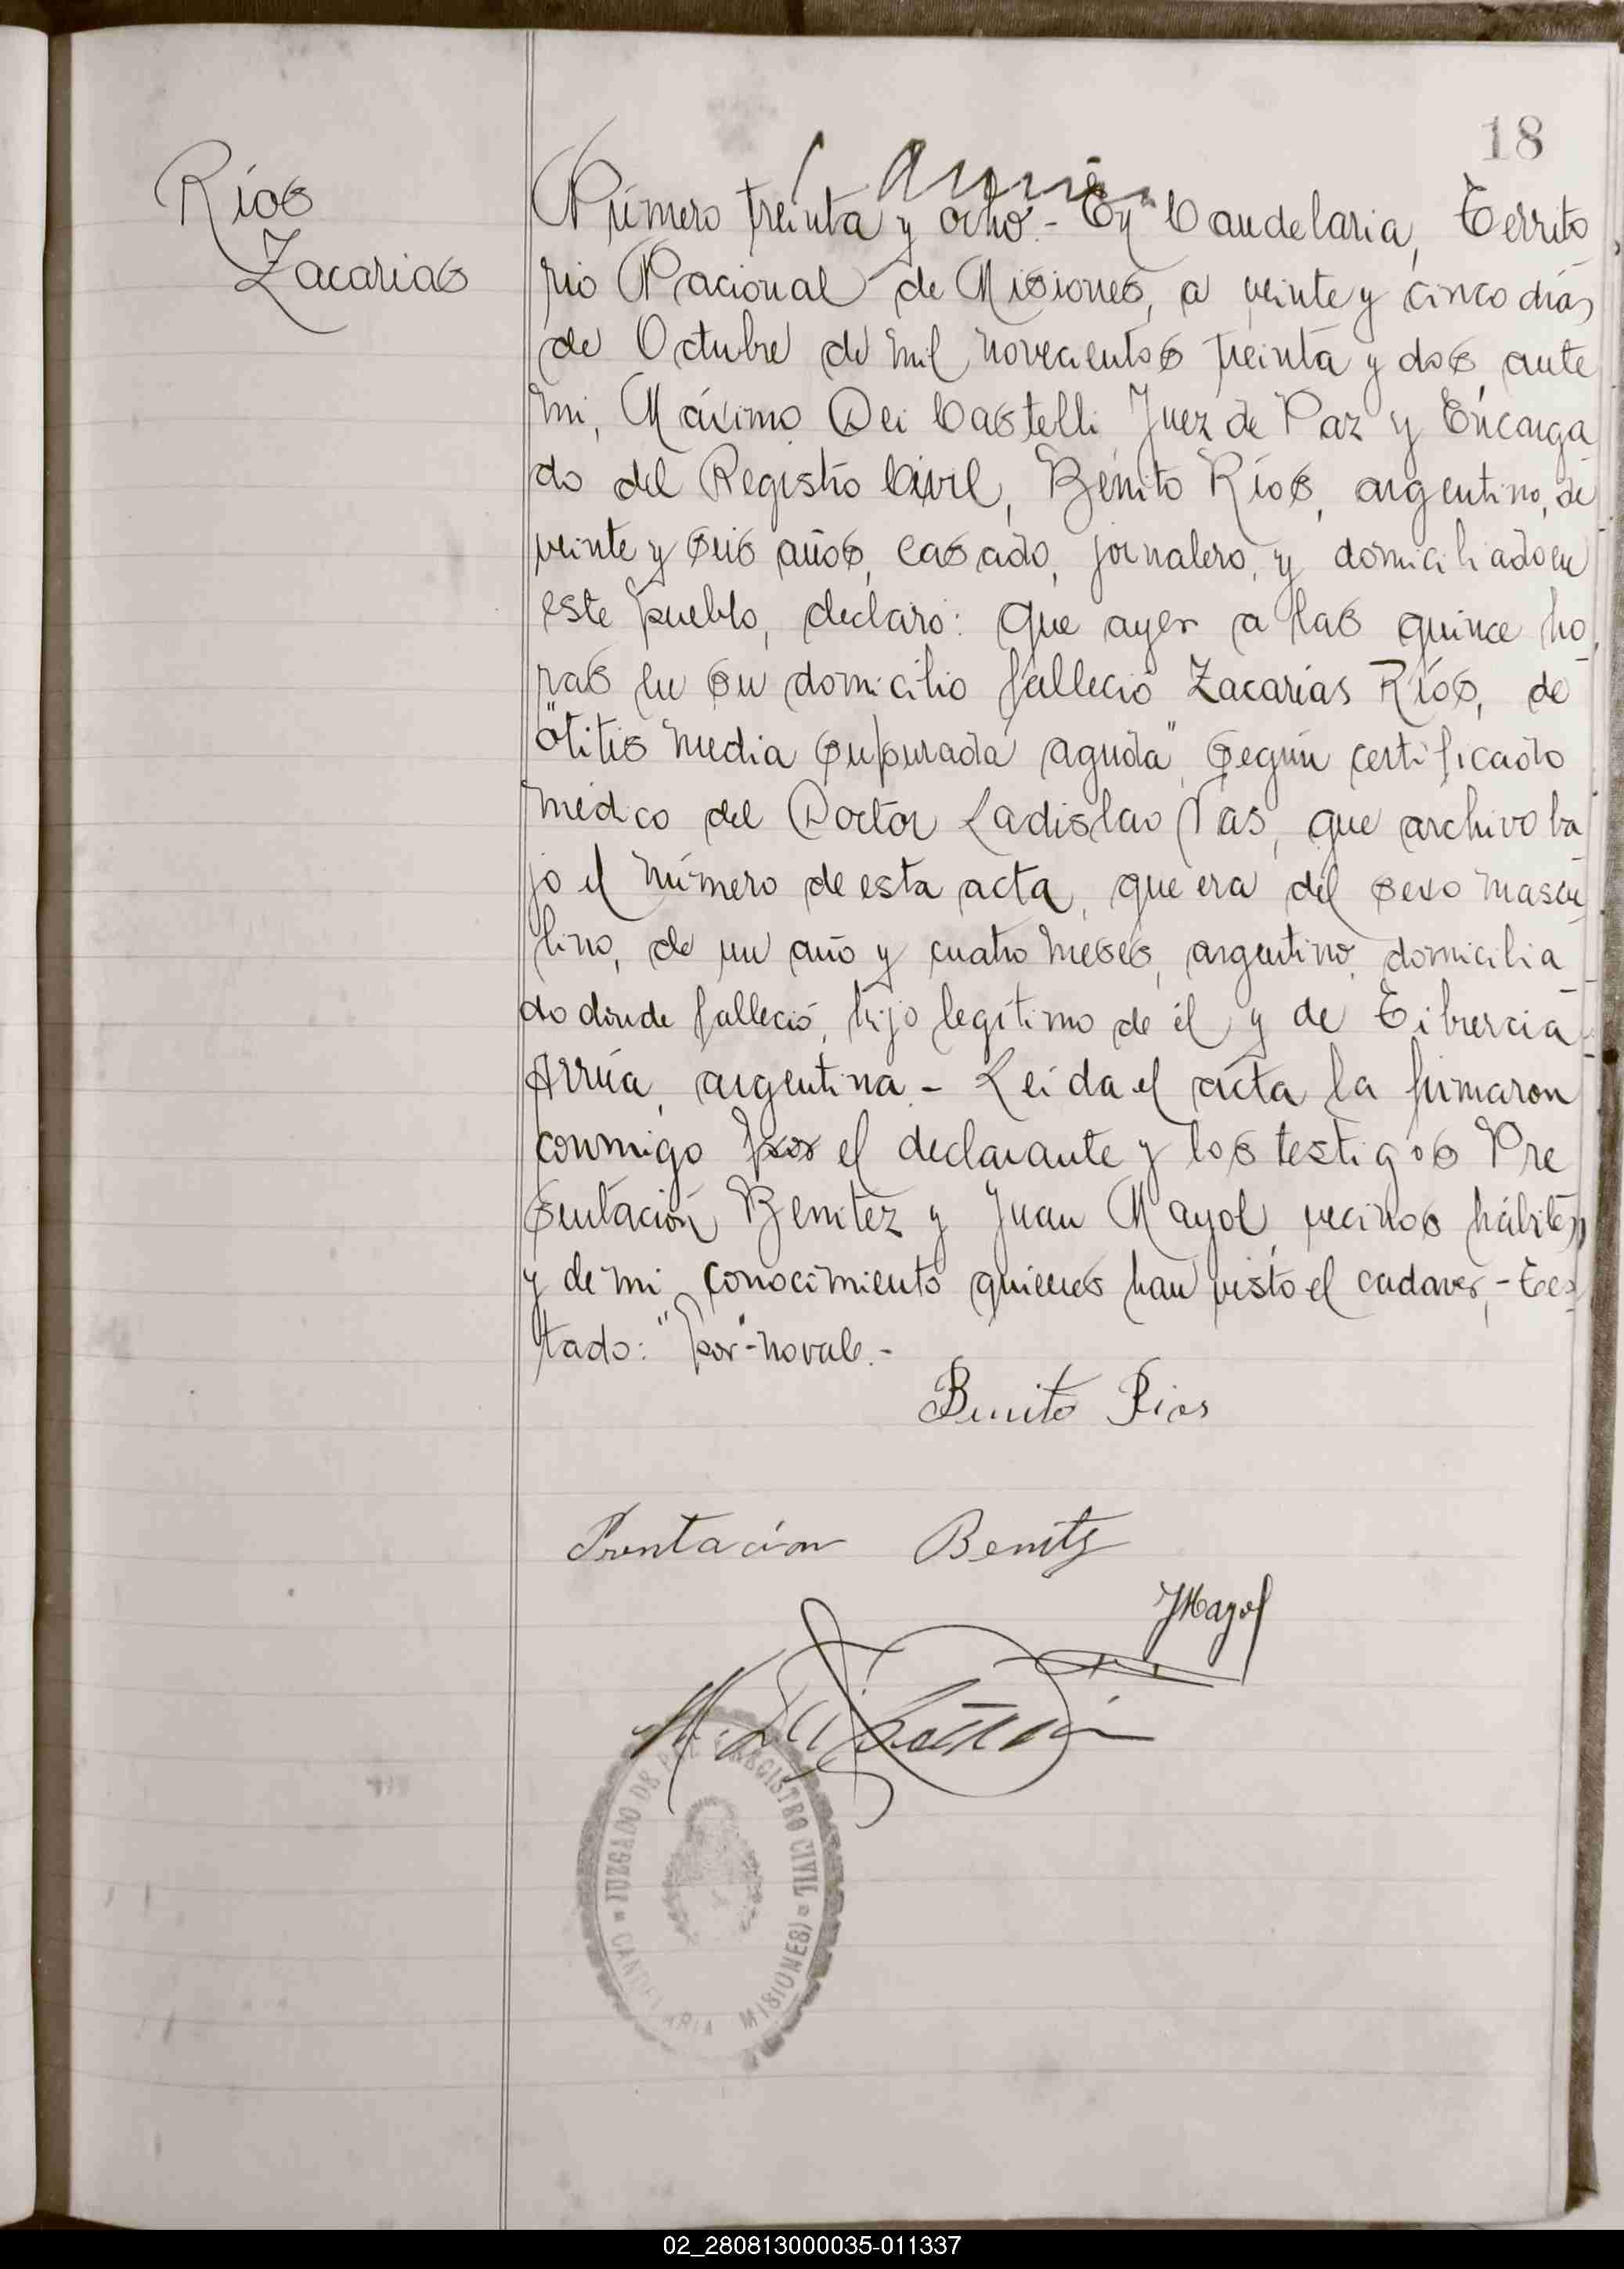 18
Ríos
Zacarias
Número treinta y ocho.- En Candelaria, Territo
rio Nacional de Misiones, a veinte y cinco días
de Octubre de mil novecientos treinta y dos, ante
mi, Máximo Dei Castelli Juez de Paz y Encarga
do del Registro Civil, Benito Ríos, argentino, de
veinte y seis años, casado, jornalero, y domiciliado en
este pueblo, declaró: Que ayer a las quince ho
ras en su domicilio falleció Zacarías Ríos, de
"otitis media supurada aguda", según certificado
médico del Doctor Ladislao, que archivo ba
jo el número de esta acta, que era del sexo mascu
lino, de un año y cuatro meses, argentino, domicilia
do donde falleció, hijo legítimo de él y de Tiburcia
Arrúa, argentina.- Leida el acta la firmaron
conmigo por el declarante y los testigos Pre
sentación Benitez y Juan Mayol, vecinos hábiles,
y de mi conocimiento quienes han visto el cadaver,- Tes
tado: "por"-no vale.-
Benito Rios
Benitz
JMayol
JUZGADO DE PAZ REGISTRO CIVIL
CANDELARIA MISIONES)
02_280813000035-011337